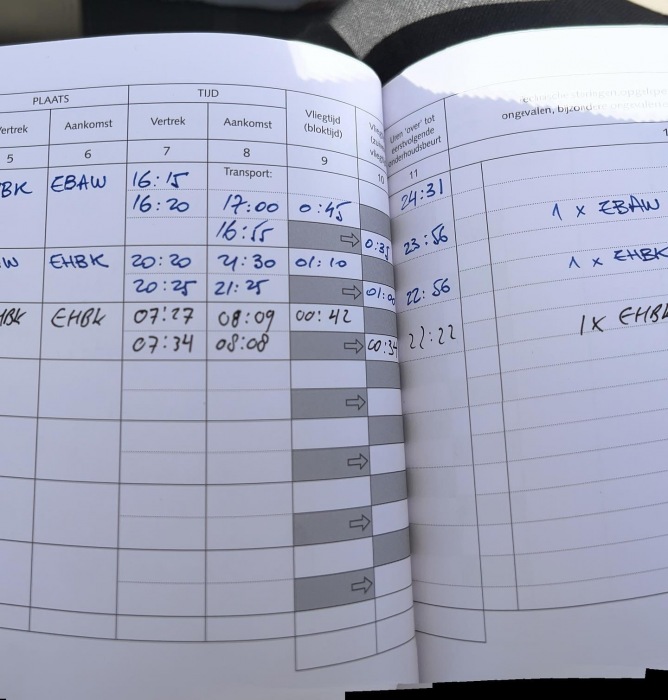 PLAATS TIJD
Aankomst Vertrek Aankomst Vliegtijd (bloktijd) Uren 'over' tot eerstvolgende onderhoudsbeurt
ongevallen,
5 6 7 8 9 10 11
Transport: 24:31
BK EBAW 16:15
16:20 17:00 0:45 1 x EBAW
16:55 0:35 23:56
W EHBK 20:20 21:30 01:10 1 x EHBK
20:25 21:25 22:56
HBK EHBK 07:27 08:09 00:42 1x
07:34 08:08 00:34 22:22